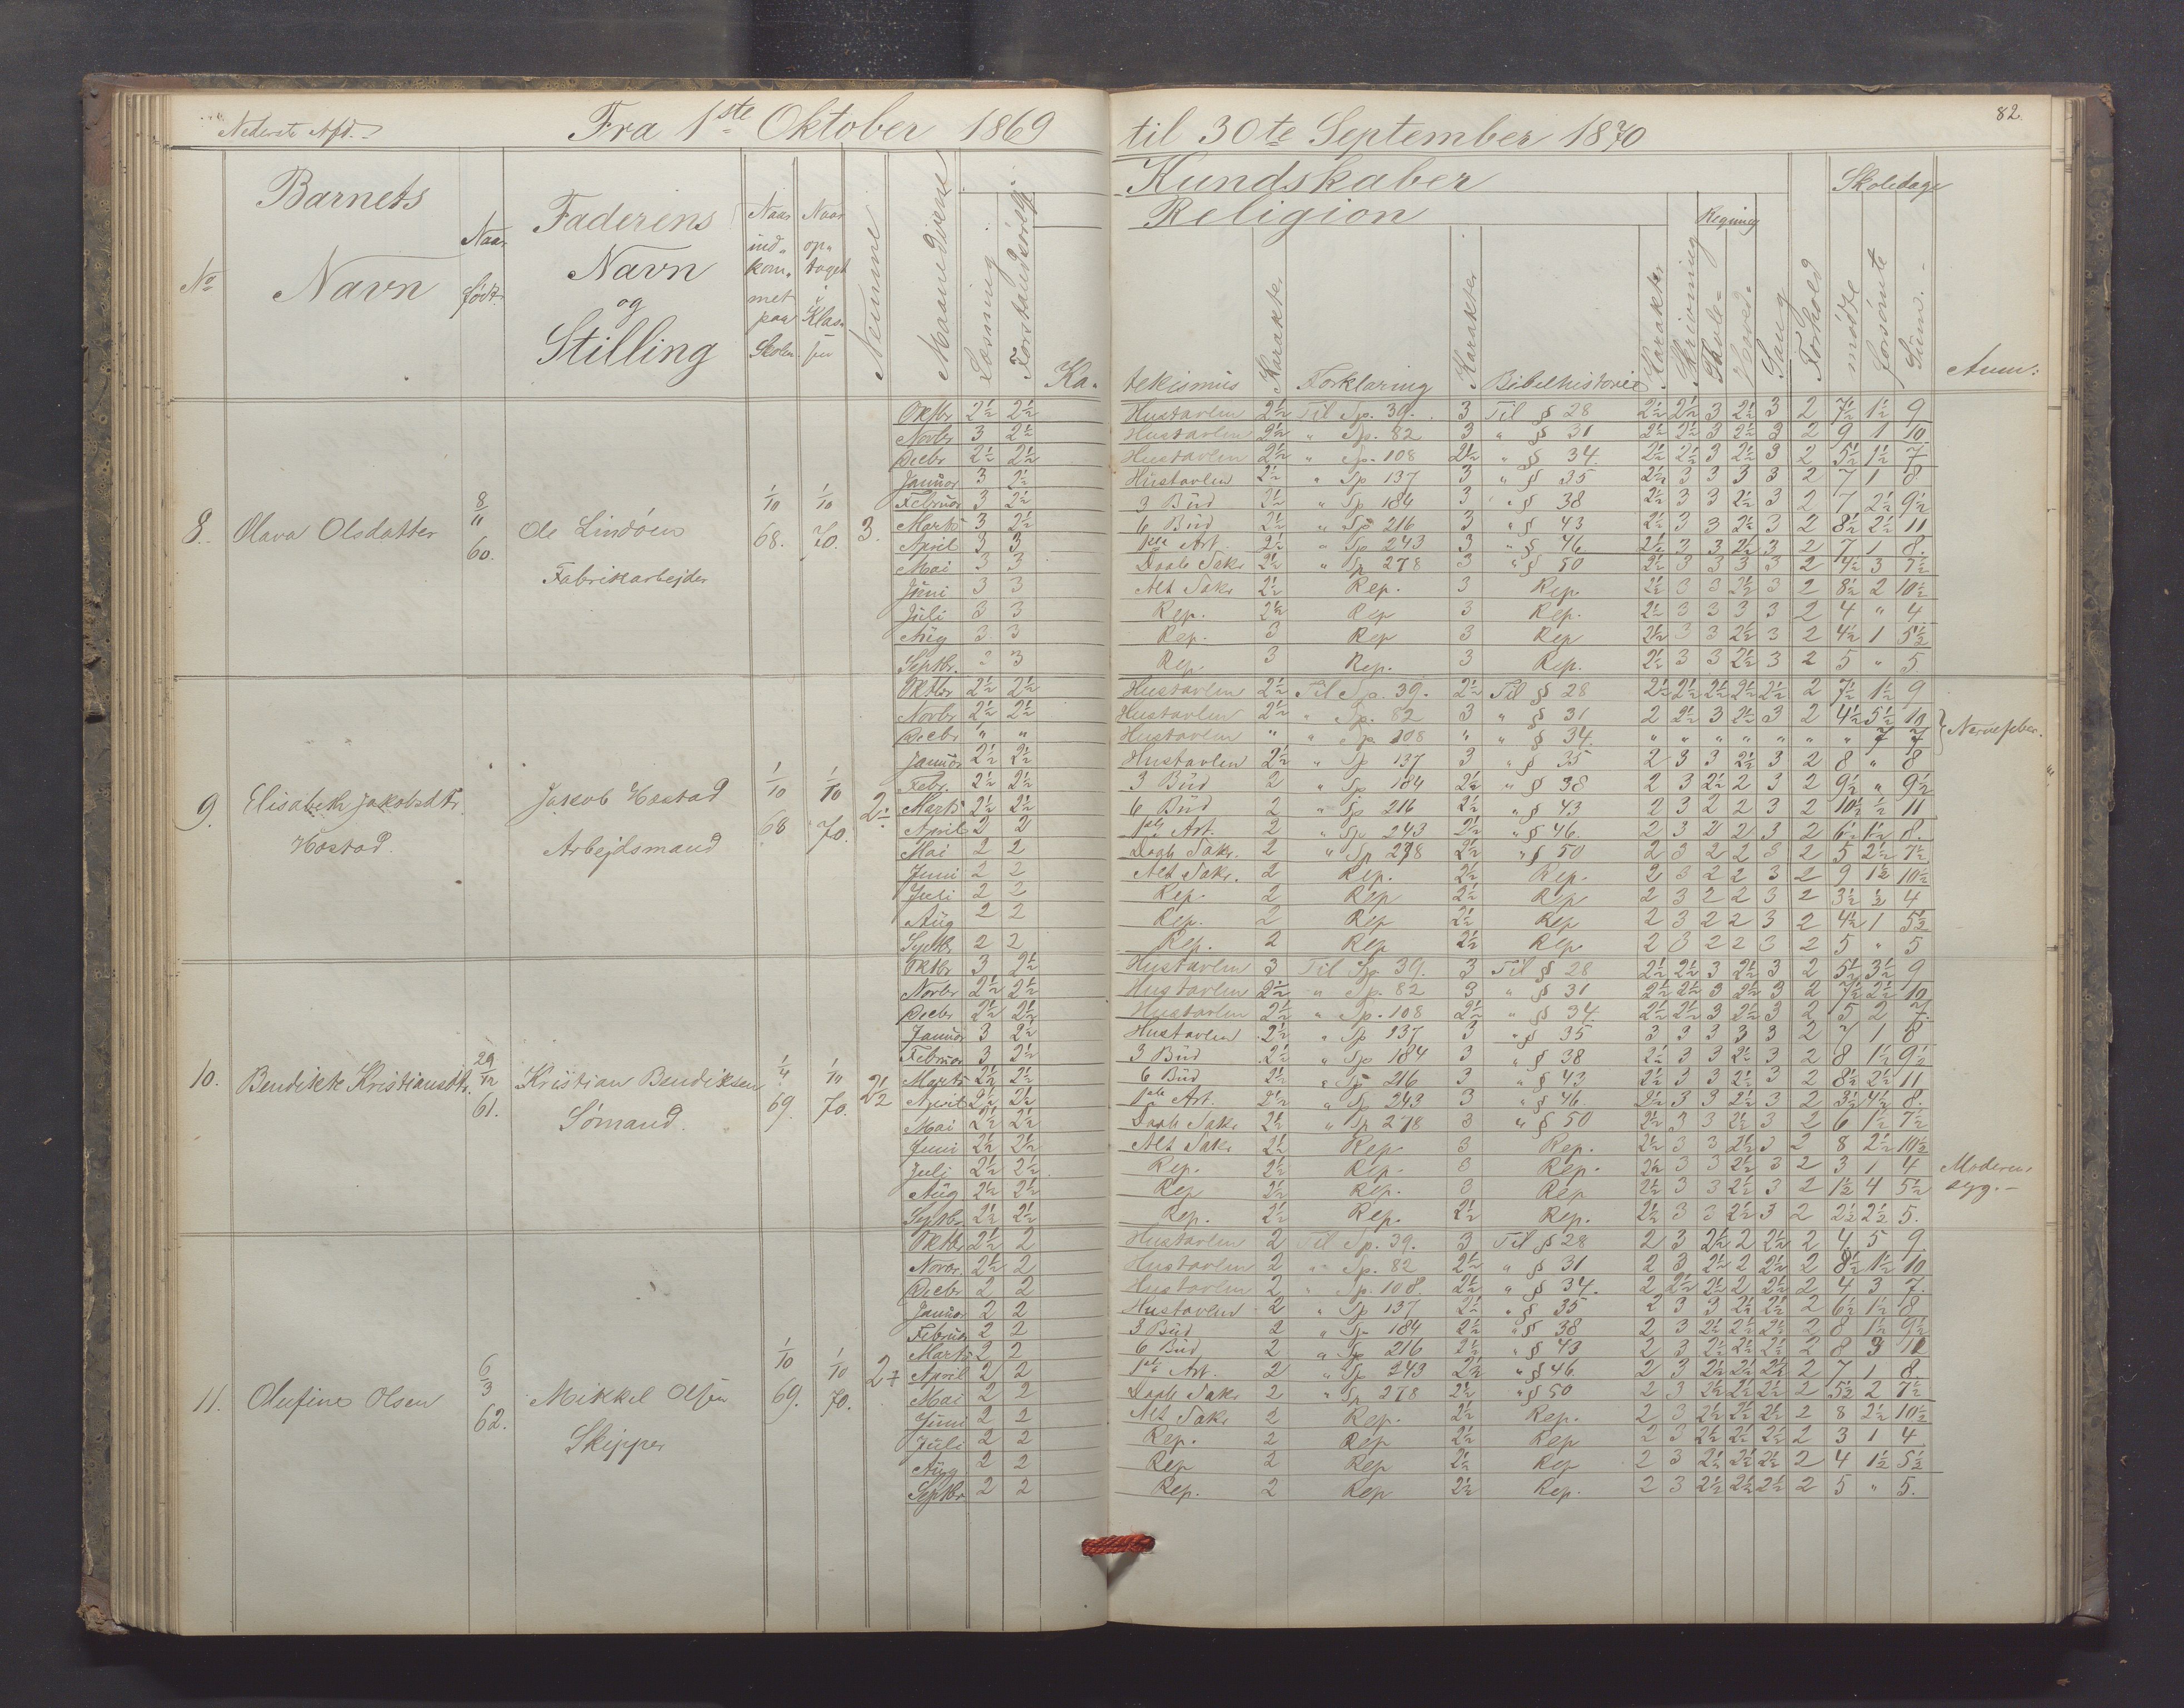 Nederste Afd.
Fra 1ste Oktober 1869
til 30te September 1870
82.
No
Barnets Navn
Naar født.
Faderens Navn og Stilling
Naar indkommet paa Skolen
Naar optaget i Klassen
Nemme
Maanedsvene
Læsning
Forstandsøvelse
Kundskaber
Religion
Katekismus
Karakter
Forklaring
Karakter
Bibelhistorie
Karakter
Skrivning
Regning
Tavle-
Hoved-
Sang
Forhold
Skoledage
mødte
forsømte
Sum.
Anm:
8. Olava Olsdatter 8/11 60. Ole Lindøen Fabrikarbejder 1/10 68. 1/10 70. 3.
Oktbr 2½ 2½ Hustavlen 2½ Til Sp. 39. 3 Til § 28 2½ 2½ 3 2½ 3 2 7½ 1½ 9
Novbr 3 2½ Hustavlen 2½ " Sp. 82 3 " § 31 2½ 2½ 3 2½ 3 2 9 1 10
Decbr 2½ 2½ Hustavlen 2½ " Sp. 108 2½ " § 34. 2½ 2½ 3 2½ 3 2 5½ 1½ 7
Januar 3 2½ Hustavlen 2½ " Sp 137 3 " § 35 2½ 3 3 3 3 2 7 1 8
Februar 3 2½ 3 Bud 2½ " Sp 184 3 " § 38 2½ 3 3 2½ 3 2 7 2½ 9½
Marts 3 2½ 6 Bud 2½ " Sp 216 3 " § 43 2½ 3 3 2½ 3 2 8½ 2½ 11
April 3 3 1ste Art. 2½ " Sp 243 3 " § 46 2½ 3 3 2½ 3 2 7 1 8.
Mai 3 3 Daab Sakr 2½ " Sp 278 3 " § 50 2½ 3 3 3 3 2 4½ 3 7½
Juni 3 3 Alt Sakr 2½ Rep. 3 Rep. 2½ 3 3 2½ 3 2 8½ 2 10½
Juli 3 3 Rep. 2½ Rep 3 Rep. 2½ 3 3 3 3 2 4 " 4
Aug 3 3 Rep. 3 Rep 3 Rep 2½ 3 3 2½ 3 2 4½ 1 5½
Septbr. 3 3 Rep. 3 Rep. 3 Rep. 2½ 3 3 2½ 3 2 5 " 5
9. Elisabeth Jakobsdtr. Hastad. Jakob Hastad Arbejdsmand 1/10 68 1/10 70. 2½
Oktbr 2½ 2½ Hustavlen 2½ Til Sp. 39. 2½ Til § 28 2½ 2½ 2½ 2½ 2½ 2 7½ 1½ 9
Novbr 2½ 2½ Hustavlen 2½ " Sp. 82 3 " § 31 2 2½ 3 2½ 3 2 4½ 5½ 10
Decbr " " Hustavlen " " Sp 108 " " § 34. " " " " " " " 7 7 Nervefeber.
Januar 2½ 2½ Hustavlen 2½ " Sp 137 3 " § 35 2 3 3 2½ 3 2 8 " 8
Febr. 2½ 2½ 3 Bud 2 " Sp 184 2½ " § 38 2 3 2½ 2 3 2 9½ " 9½
Marts 2½ 2½ 6 Bud 2 " Sp 216 2½ " § 43 2 3 2 2 3 2 10½ ½ 11
April 2 2 1ste Art. 2 " Sp 243 2½ " § 46. 2 3 2 2 3 2 6½ 1½ 8.
Mai 2 2 Daab Sakr. 2 " Sp 278 2½ " § 50 2 3 2 2 3 2 5 2½ 7½
Juni 2 2 Alt Sakr. 2 Rep. 2½ Rep. 2 3 2 2 3 2 9 1½ 10½
Juli 2 2 Rep. 2 Rep 2½ Rep 2 3 2 2 3 2 3½ ½ 4
Aug 2 2 Rep. 2 Rep 2½ Rep 2 3 2 2 3 2 4½ 1 5½
Septbr 2 2 Rep. 2 Rep 2½ Rep 2 3 2 2 3 2 5 " 5
10. Bendikte Kristiansdtr. 29/12 61. Kristian Bendiksen Sømand. 1/4 69. 1/10 70. 2½
Oktbr 3 2½ Hustavlen 3 Til Sp 39. 3 Til § 28 2½ 2½ 3 2½ 3 2 5½ 3½ 9
Novbr 2½ 2½ Hustavlen 2½ " Sp. 82 3 " § 31 2½ 2½ 3 2½ 3 2 7½ 2½ 10
Decbr 2½ 2½ Hustavlen 2½ " Sp. 108 2½ " § 34. 2½ 2½ 3 2½ 3 2 5 2 7.
Januar 3 2½ Hustavlen 2½ " Sp 137 3 " § 35 3 3 3 3 3 2 7 1 8
Februar 3 2½ 3 Bud 2½ " Sp 184 3 " § 38 2½ 3 3 2½ 3 2 8 1½ 9½
Marts 2½ 2½ 6 Bud 2½ " Sp 216 3 " § 43 2½ 3 3 2½ 3 2 8½ 2½ 11
April 2½ 2½ 1ste Art. 2½ " Sp 243 3 " § 46. 2½ 3 3 2½ 3 2 3½ 4½ 8.
Mai 2½ 2½ Daab Sakr 2½ " Sp 278 3 " § 50 2½ 3 3 2½ 3 2 6 1½ 7½
Juni 2½ 2½ Alt Sakr 2½ Rep 3 Rep. 2½ 3 3 2½ 3 2 8 2½ 10½
Juli 2½ 2½ Rep. 2½ Rep. 3 Rep. 2½ 3 3 2½ 3 2 3 1 4 Moderen
Aug 2½ 2½ Rep 2½ Rep. 3 Rep 2½ 3 3 2½ 3 2 1½ 4 5½ syg.
Septbr 2½ 2½ Rep. 2½ Rep. 2½ Rep. 2½ 3 3 2½ 3 2 2½ 2½ 5.
11. Olufine Olsen 6/3 62. Mikkel Olsen Skipper 1/10 69. 1/10 70. 2
Oktbr 2½ 2 Hustavlen 2 Til Sp. 39. 3 Til § 28 2 3 2½ 2 2½ 2 4 5 9
Novbr. 2½ 2 Hustavlen 2 " Sp. 82 2½ " § 31 2 3 2½ 2 2½ 2 8½ 1½ 10
Decbr 2 2 Hustavlen 2 " Sp. 108. 2½ " § 34. 2 2½ 2½ 2 2½ 2 4 3 7.
Januar 2 2 Hustavlen 2 " Sp 137 2½ " § 35 2 3 3 2½ 2½ 2 6½ 1½ 8
Februar 2 2 3 Bud 2 " Sp 184 2½ " § 38 2 3 2½ 2½ 2½ 2 8 1½ 9½
Marts 2 2 6 Bud 2 " Sp 216 2½ " § 43 2 3 2½ 2½ 2½ 2 8 3 11
April 2 2 1ste Art. 2 " Sp 243 2½ " § 46 2 3 2½ 2½ 2½ 2 7 1 8.
Mai 2 2 Daab Sakr 2 " Sp 278 2½ " § 50 2 3 2½ 2½ 2½ 2 5½ 2 7½
Juni 2 2 Alt Sakr 2 Rep. 2½ Rep. 2 3 2½ 2½ 2½ 2 8 2½ 10½
Juli 2 2 Rep. 2 Rep 2½ Rep 2 3 2½ 2½ 2½ 2 3 1 4
Aug 2 2 Rep 2 Rep 2½ Rep 2 3 2½ 2½ 2½ 2 4 1½ 5½
Septbr 2 2 Rep. 2 Rep 2½ Rep. 2 3 2½ 2½ 2½ 2 5 " 5.